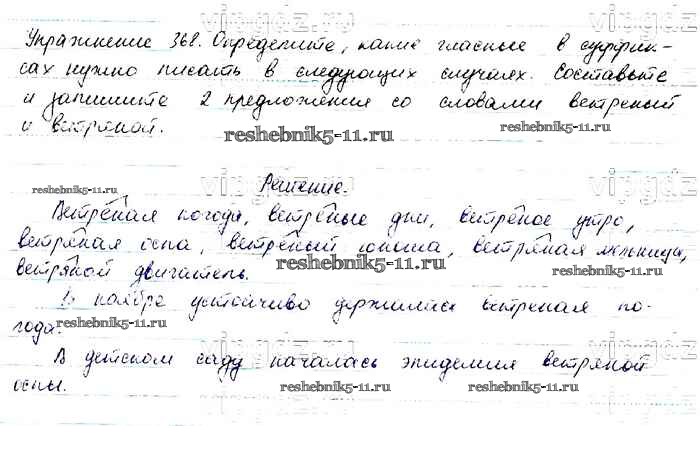 Упражнение 368. Определите, какие гласные в суффик-
сах нужно писать в следующих случаях. Составьте
и запишите 2 предложения со словами ветреный
и ветряной.
reshebnik5-11.ru
reshebnik5-11.ru
reshebnik5-11.ru
vipgdz
Решение.
Ветреная погода, ветреные дни, ветреное утро,
ветряная оспа, ветреный юноша, ветряная мельница,
ветряной двигатель.
reshebnik5-11.ru
reshebnik5-11.ru
В ноябре устойчиво держалась ветреная по-
года.
reshebnik5-11.ru
reshebnik5-11.ru
В детском саду началась эпидемия ветряной
оспы.
reshebnik5-11.ru
reshebnik5-11.ru